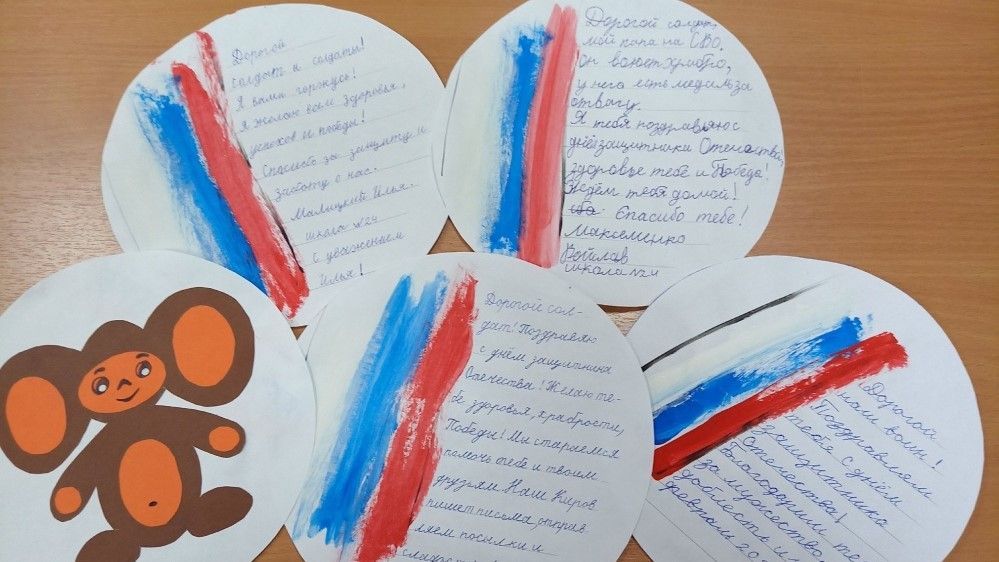 Дорогой
солдат и солдаты!
Я вами горжусь!
Я желаю всем здоровья,
успехов и победы!
Спасибо за защиту и
заботу о нас.
Малицкий Илья.
школа №24
с уважением
Илья!
Дорогой солдат,
мой папа на СВО.
Он воюет храбро,
у него есть медаль за
отвагу.
Я тебя поздравляю с
днём защитника Отечества,
здоровье тебе и Победа!
Ждём тебя домой!
Спасибо тебе!
Максеменко
школа №24
Дорогой сол-
дат! Поздравляю
с днём защитника
Отечества! Желаю те-
бе здоровья, храбрости,
Победы! Мы стараемся
помочь тебе и твоим
друзьям. Наш Киров
пишет письма, отправ
ляем посылки и
Дорогой
наш воин!
Поздравляем
тебя с днём
защитника
Отечества!
Благодарим те
за мужество
доблесть и
февраль 20